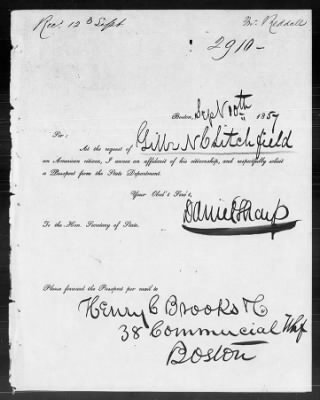 Rec. 12th Sept
Mr. Reddall
2910-
Boston, Sept 10th 1857
Sir:
At the request of
an American citizen, I annex an affidavit of his citizenship, and respectfully solicit
a Passport from the State Department.
Your Obd't Serv't,
Daniel Sharp
To the Hon. Secretary of State.
Please forward the Passport per mail to
Henry C Brooks & Co
38 Commercial Whf
Boston